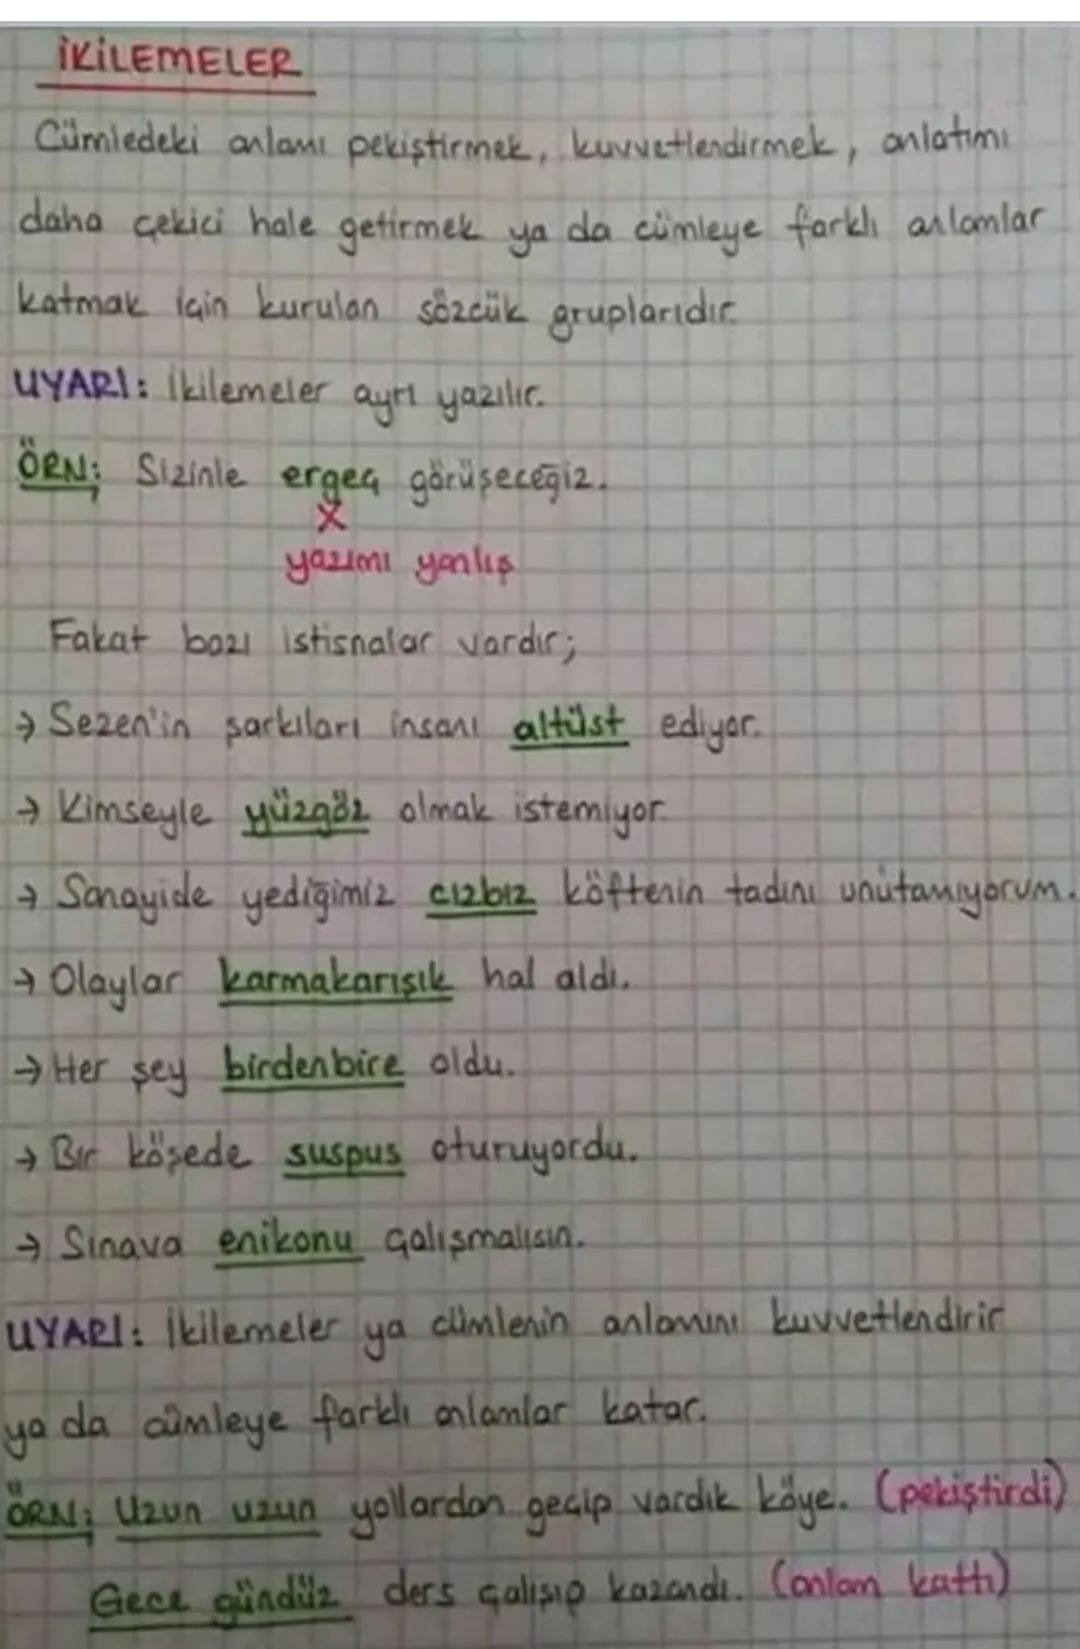 İKİLEMELER
Cümledeki anlamı pekiştirmek, kuvvetlendirmek, anlatımı
daha çekici hale getirmek ya da cümleye farklı anlamlar
katmak için kurulan sözcük gruplarıdır.
UYARI: İkilemeler ayrı yazılır.
ÖRN; Sizinle ergeç görüşeceğiz.
X
yazımı yanlış
Fakat bazı istisnalar vardır;
→ Sezen'in şarkıları insanı altüst ediyor.
→ Kimseyle yüzgöz olmak istemiyor.
→ Sanayide yediğimiz cızbız köftenin tadını unutamıyorum.
→ Olaylar karmakarışık hal aldı.
→ Her şey birdenbire oldu.
→ Bir köşede suspus oturuyordu.
→ Sınava enikonu çalışmalısın.
UYARI: İkilemeler ya cümlenin anlamını kuvvetlendirir
ya da cümleye farklı anlamlar katar.
ÖRN; Uzun uzun yollardan geçip vardık köye. (pekiştirdi)
Gece gündüz ders çalışıp kazandı. (anlam kattı)